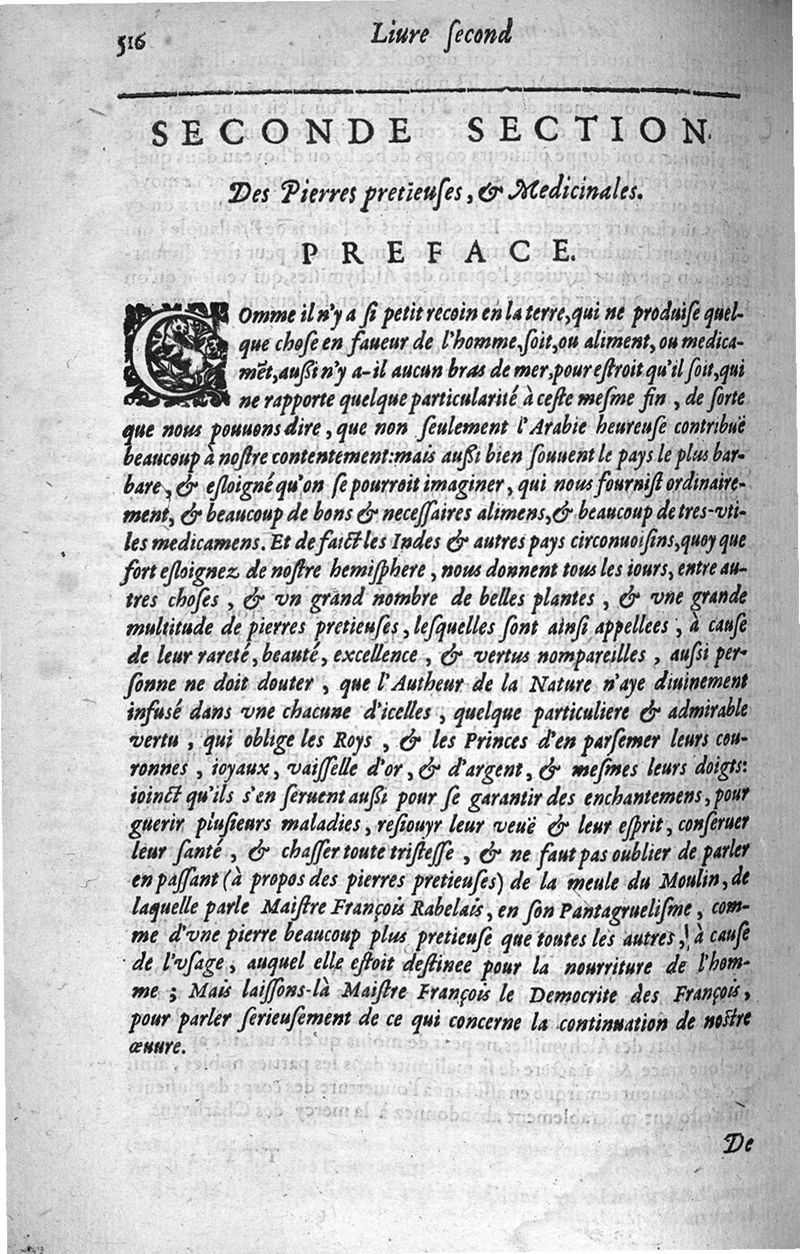 516
Liure ſecond
SECONDE SECTION.
Des Pierres pretieuſes, & Medicinales.
PREFACE.
COmme il n'y a ſi petit recoin en la terre, qui ne produiſe quel-
que choſe en faueur de l'homme, ſoit, ou aliment, ou medica-
mẽt, auſſi n'y a-il aucun bras de mer, pour eſtroit qu'il ſoit, qui
ne rapporte quelque particularité à ceſte meſme fin, de ſorte
que nous pouuons dire, que non ſeulement l'Arabie heureuſe contribuë
beaucoup à noſtre contentement: mais auſſi bien ſouuent le pays le plus bar-
bare, & eſloigné qu'on ſe pourroit imaginer, qui nous fourniſt ordinaire-
ment, & beaucoup de bons & neceſſaires alimens, & beaucoup de tres-vti-
les medicamens. Et de faict les Indes & autres pays circonuoiſins, quoy que
fort eſloignez de noſtre hemiſphere, nous donnent tous les iours, entre au-
tres choſes, & vn grand nombre de belles plantes, & vne grande
multitude de pierres pretieuſes, leſquelles ſont ainſi appellees, à cauſe
de leur rareté, beauté, excellence, & vertus nompareilles, auſſi per-
ſonne ne doit douter, que l'Autheur de la Nature n'aye diuinement
infuſé dans vne chacune d'icelles, quelque particuliere & admirable
vertu, qui oblige les Roys, & les Princes d'en parſemer leurs cou-
ronnes, ioyaux, vaiſſelle d'or, & d'argent, & meſmes leurs doigts:
ioinct qu'ils s'en ſeruent auſſi pour ſe garantir des enchantemens, pour
guerir pluſieurs maladies, reſiouyr leur veuë & leur eſprit, conſeruer
leur ſanté, & chaſſer toute triſteſſe, & ne faut pas oublier de parler
en paſſant (à propos des pierres pretieuſes) de la meule du Moulin, de
laquelle parle Maiſtre François Rabelais, en ſon Pantagrueliſme, com-
me d'vne pierre beaucoup plus pretieuſe que toutes les autres, à cauſe
de l'vſage, auquel elle eſtoit deſtinee pour la nourriture de l'hom-
me ; Mais laiſſons-là Maiſtre François le Democrite des François,
pour parler ſerieuſement de ce qui concerne la continuation de noſtre
œuure.
De